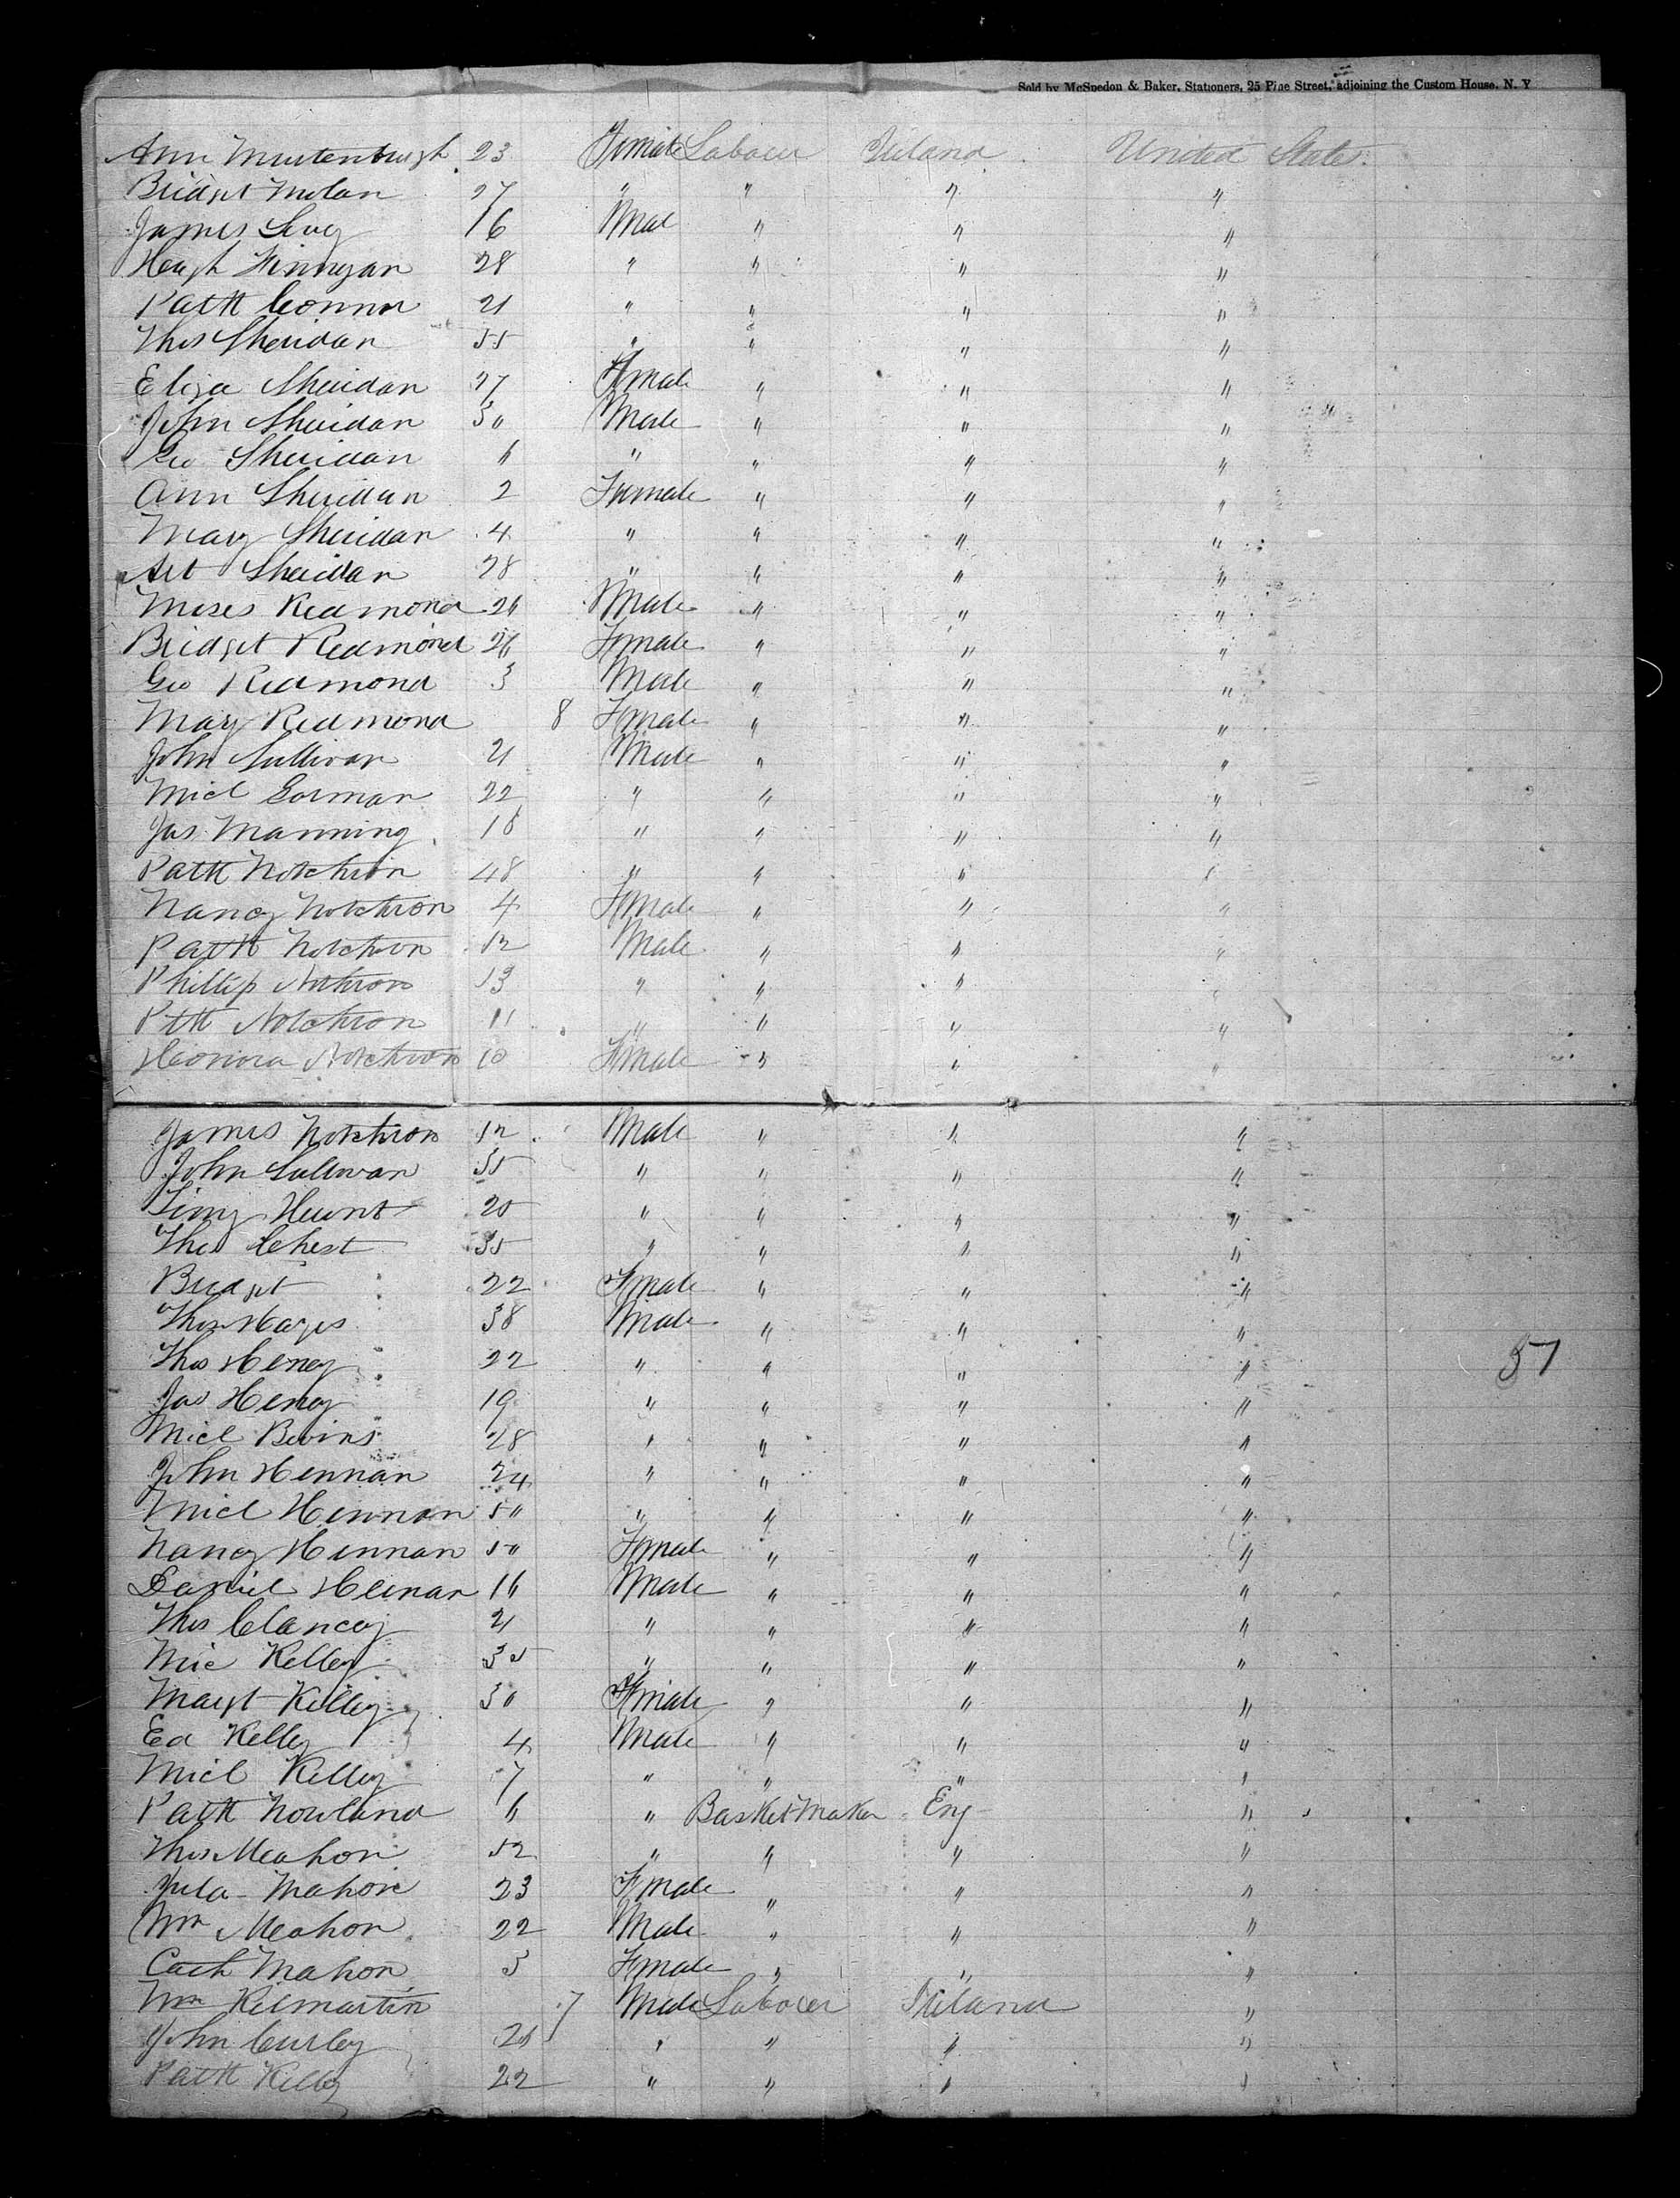 Sold by McSpedon & Baker, Stationers, 25 Pine Street, adjoining the Custom House, N. Y
Ann 23 Female Labour Ireland United State
Bridget Nolan 27 " " " "
James 16 Mal " " "
Hugh Finnigan 28 " " " "
Patk Connor 21 " " " "
Thos Sheridan 55 " " " "
Eliza Sheridan 27 Female " " "
John Sheridan 30 Male " " "
Geo Sheridan 6 " " " "
Ann Sheridan 2 Female " " "
Mary Sheridan 4 " " " "
Sheridan 28 " " " "
Moses Redmond 26 Male " " "
Bridget Redmond 26 Female " " "
Geo Redmond 3 Male " " "
Mary Redmond 8 Female " " "
John Sullivan 21 Male " " "
Micl Gorman 22 " " " "
Jas Manning 18 " " " "
Patk Notchion 48 " " " "
Nancy Notchion 4 Female " " "
Patk Notchion 12 Male " " "
Phillip 13 " " "
Ptk Notchion 11 " " " "
Honora Notchion 10 Female " " "
James Notchion 12 Male " " "
John Sullivan 35 " " " "
Timy Hunt 20 " " " "
Thos Chest 35 " " " "
Bridget 22 Female " " "
Thos Hayes 38 Male " " "
Thos Heney 22 " " " " 57
Jas Heney 19 " " " "
Micl Bevins 28 " " " "
John Hennan 24 " " " "
Micl Hennan 50 " " " "
Nancy Hennan 50 Female " " "
Daniel Heenan 16 Male " " "
Thos Clancey 21 " " " "
Mic Kelley 35 " " " "
Margt Killey 30 Female " " "
Ed Kelley 4 Male " " "
Micl Killey 7 " " " "
Patk Nowland 6 " Basket Maker Eng "
Thos Meahon 52 " " " "
Mahon 23 Female " " "
Wm Meahon 22 Male " " "
Cath Mahon 5 Female " " "
Wm Kilmartin 7 Male Labour Ireland "
John Curley 26 " " " "
Patk Kelley 22 " " " "